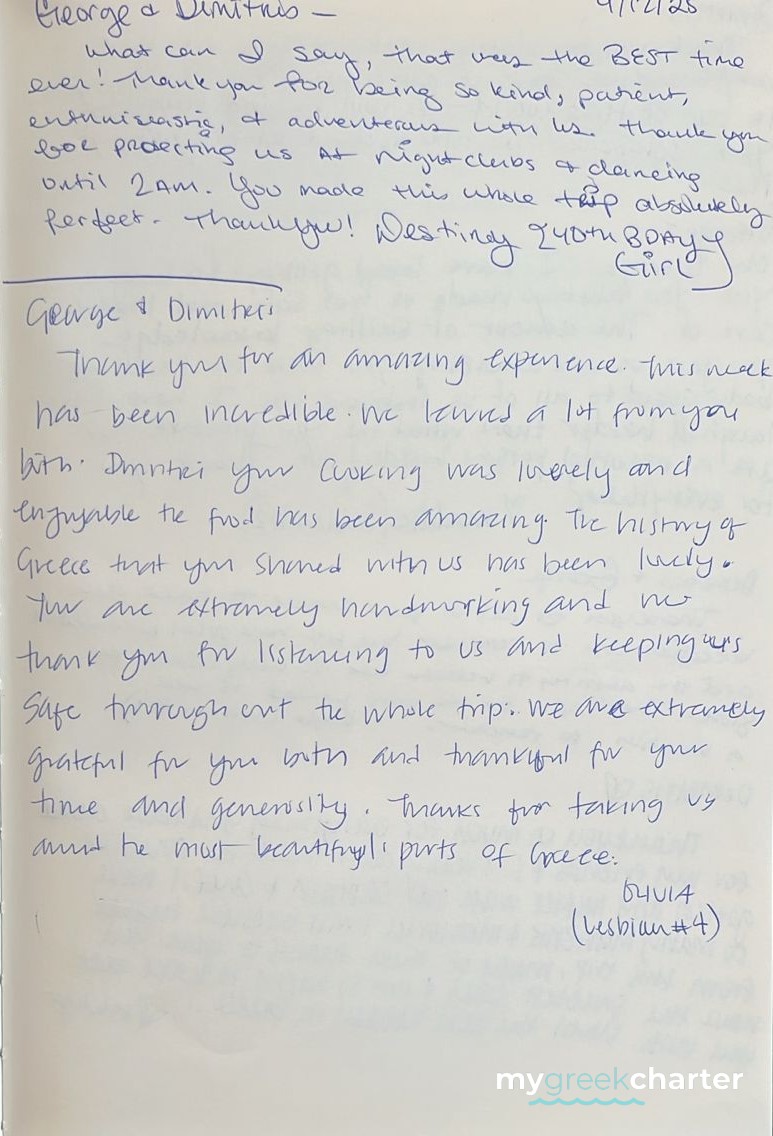 George & Dimitris — 9/12/25
What can I say, that was the BEST time
ever! Thank you for being so kind, patient,
enthusiastic, & adventerous with us. Thank you
for protecting us at nightclubs & dancing
until 2AM. You made this whole trip absolutely
perfect. Thank you! Destiny {40th BDAY
Girl}
George & Dimitris
Thank you for an amazing experience. This week
has been incredible. We learned a lot from you
both. Dimitri your cooking was lovely and
enjoyable the food has been amazing. The history of
Greece that you shared with us has been lovely.
You are extremely hardworking and we
thank you for listening to us and keeping us
safe through out the whole trip. We are extremely
grateful for you both and thankful for your
time and generosity. Thanks for taking us
around the most beautiful parts of Greece.
OLIVIA
(Lesbian #4)
mygreekcharter